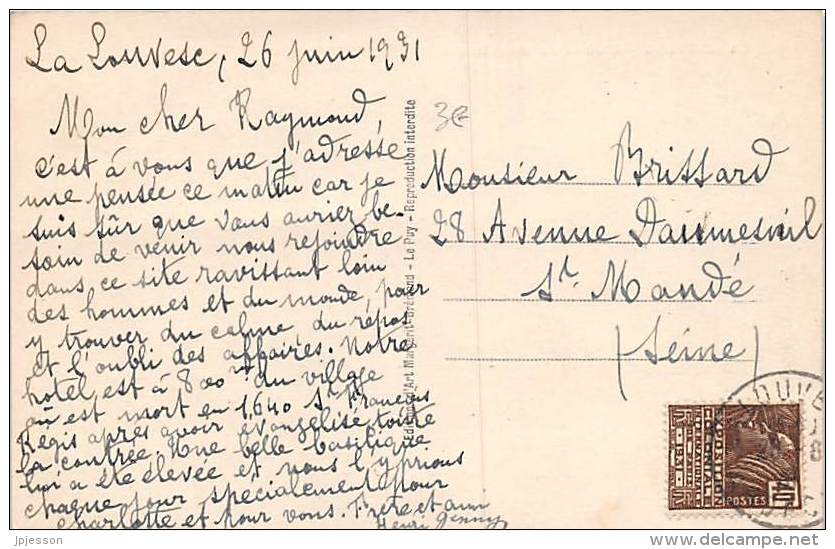 La Louvesc, 26 juin 1931
Mon cher Raymond,
c'est à vous que j'adresse
une pensée ce matin car je
suis sûr que vous auriez be-
soin de venir nous rejoindre
dans ce site ravissant loin
des hommes et du monde, pour
y trouver du calme du repos
et l'oubli des affaires. Notre
hotel est à 800m du village
où est mort en 1640 St François
Régis après avoir évangélisé toute
la contrée. Une belle basilique
lui a été élevée et nous l'y prions
chaque jour spécialement pour
Charlotte et pour vous. Frère et ami
Henri Jenny
Édition d'Art - Le Puy - Reproduction interdite
3e
Monsieur Brissard
28 Avenue Daumesnil
St Mandé
(Seine)
LOUVE
EXPOSITION
COLONIALE
INTERNATIONALE
PARIS 1931
POSTES
40c
jpjesson
www.delcampe.net